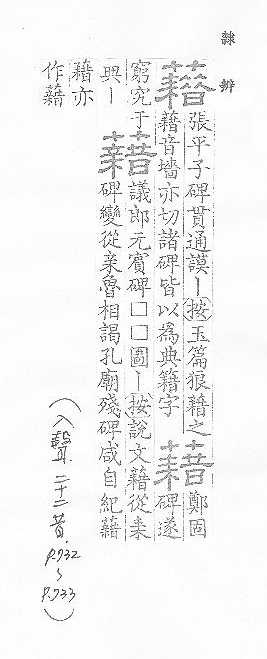 隸辨
藉
張平子碑貫通謨丨按玉篇狼藉之
藉音墻亦切諸碑皆以為典籍字
藉
鄭固
碑遂
窮究于
興丨
藉
議郎元賓碑□□圖丨按說文藉從耒
碑變從亲魯相謁孔廟殘碑咸自紀藉
藉亦
作藉
(入聲 二十二昔. P.732~P.733)